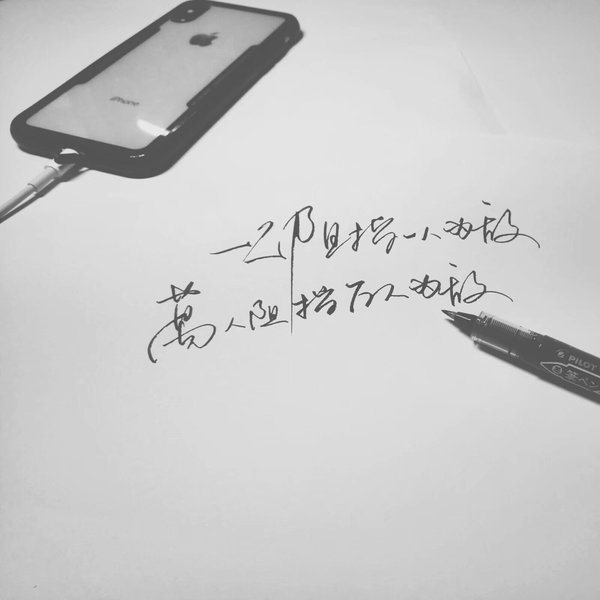 iPhone
一阻挡一人为敌
萬人阻挡万人为敌
PILOT
筆ペン